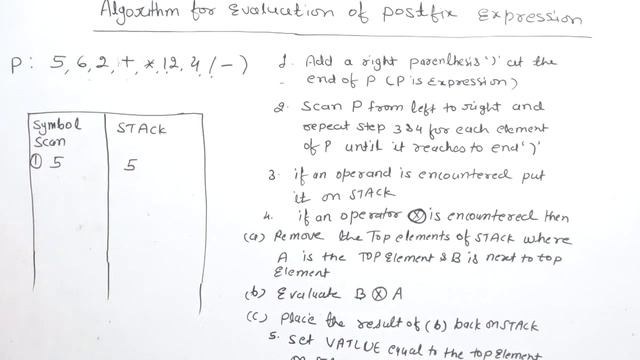 Algorithm for Evaluation of Postfix Expression
P: 5, 6, 2, +, *, 12, 4, / - )
Symbol Scan STACK
① 5 5
1. Add a right parenthesis ')' at the
end of P (P is Expression)
2. Scan P from left to right and
repeat step 3 & 4 for each element
of P until it reaches to end ')'
3. if an operand is encountered put
it on STACK
4. if an operator ⊗ is encountered then
(a) Remove the Top elements of STACK where
A is the TOP Element & B is next to top
Element
(b) Evaluate B ⊗ A
(c) Place the result of (b) back on STACK
5. Set VATLUE equal to the top Element